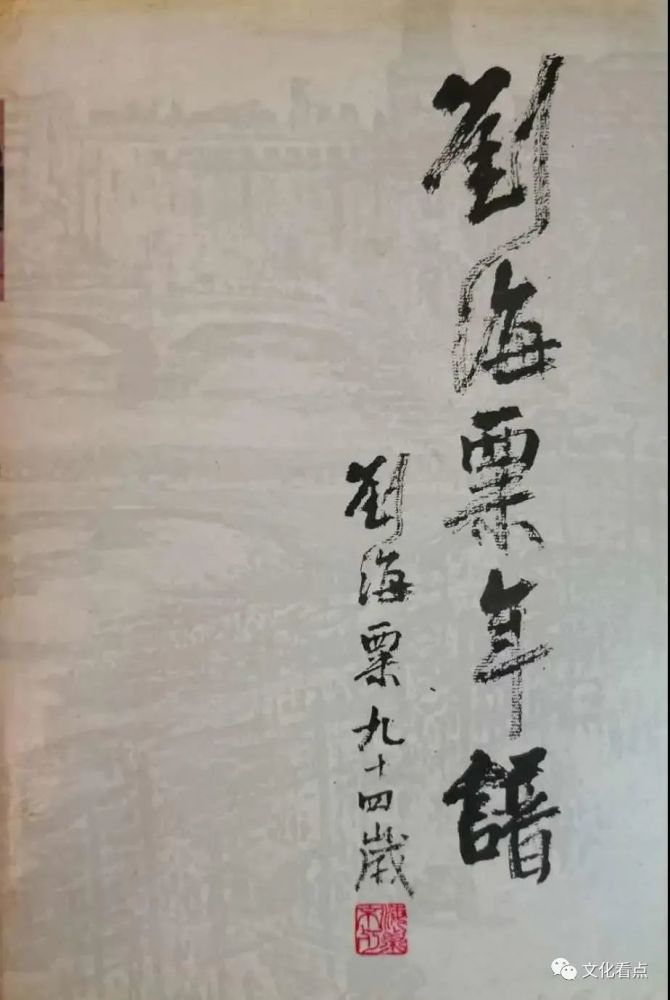 劉海粟年譜
劉海粟九十四歲
文化看点